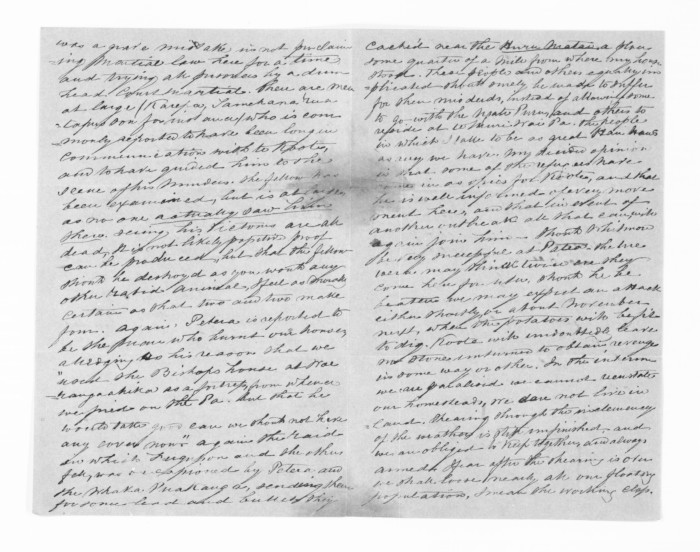 was a grave mistake in not proclaim
ing Martial law here for a time
and trying all prisoners by a drum
head Court martial. There are men
at large (Karepa, Tamehana Rua
son for instance) who is com
monly reported to have been long in
communication with te Kooti,
and to have guided him to the
scene of his Murders. the fellow has
been examined, but is at
as no one actually saw him
there, seeing his victims are all
dead, It is not likely positive proof
can be produced, but that the fellow
should be destroyed as you would any
other rabid animal, I feel as
certain as that two and two make
four. Again, Petera is reported to
be the man who burnt our houses,
alledging as his reason that we
"used the Bishops house at Wae
rengaahika as a fortress from whence
we fired on the Pa. but that he
would take good care we should not have
any cover now" again the raid
in which Ferguson and the others
fell, was by Petera and
the Whaka sending them
for some lead and bullets they
cached near the a place
some quarter of a mile from where my house
stood. These people and others equally im
plicated should surely be made to suffer
for their misdeeds, instead of allowing some
to go with the and others to
reside at Pa. the people
in which I take to be as great
as any we have. My decided opinion
is that some of the have
come in as spies for Kooti, and that
he is well informed of every move
ment here, and that in event of
another outbreak all that can, will
again join him. Should Whitmore
be very successful at the
may think twice ere they
come here for, should he be
beaten we may expect an attack
either shortly, or about November
next, when the potatoes will be fit
to dig. Kooti will undoubtedly leave
no stone unturned to obtain revenge
in some way or other. In the interim
we are paralised we cannot reinstate
our homesteads, We dare not live in
land, Shearing through the inclemency
of the weather is still unfinished, and
we are obliged to keep together, and always
armed. I fear after the shearing is over
we shall loose nearly all our floating
population, I mean the working class.